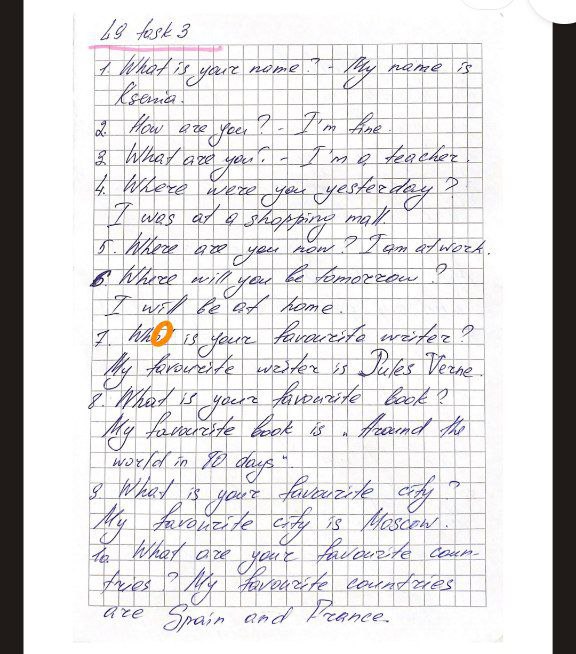 L9 task 3
1. What is your name? - My name is
Ksenia.
2. How are you? - I'm fine.
3. What are you? - I'm a teacher.
4. Where were you yesterday?
I was at a shopping mall.
5. Where are you now? I am at work.
6. Where will you be tomorrow?
I will be at home.
7. Who is your favourite writer?
My favourite writer is Jules Verne.
8. What is your favourite book?
My favourite book is „Around the
world in 80 days".
9. What is your favourite city?
My favourite city is Moscow.
10. What are your favourite coun-
tries? My favourite countries
are Spain and France.